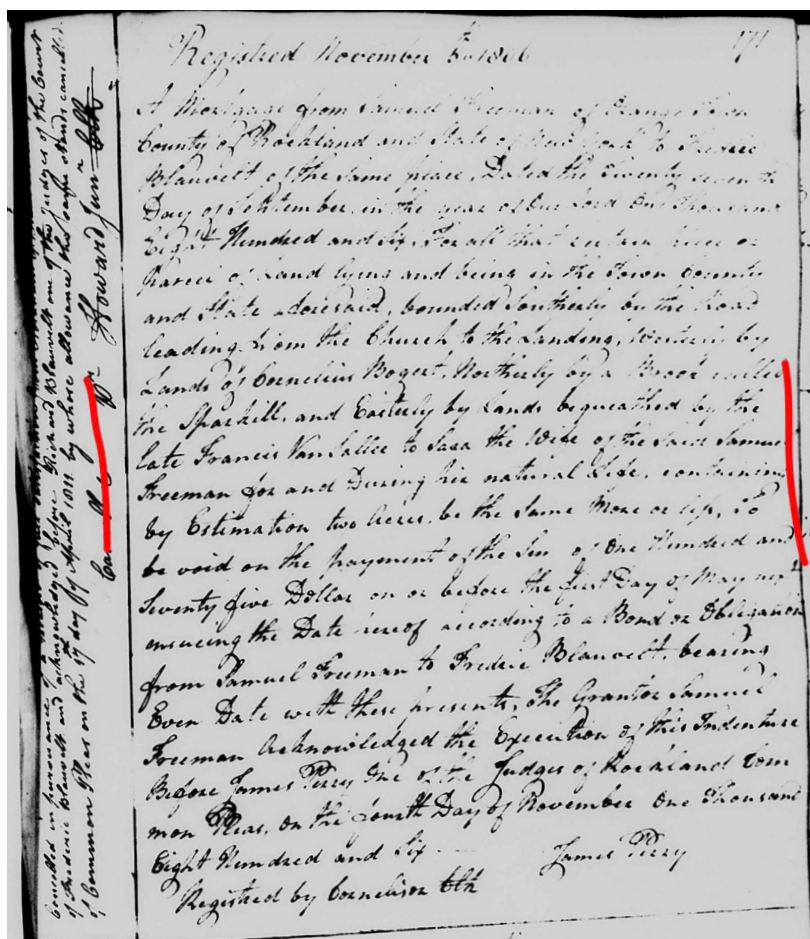 Registred November 5th 1806
171
A Mortgage from Samuel Freeman of Orange Town
County of Rockland and State of New York to Frederic
Blauvelt of the same place, Dated the Twenty seventh
Day of September, in the year of Our Lord One Thousand
Eight Hundred and Six, For all that certain piece or
Parcel of Land lying and being in the Town County
and State aforesaid, bounded Southerly by the Road
leading from the Church to the Landing, Westerly by
Lands of Cornelius Bogert, Northerly by a Brook called
the Sparkill, and Easterly by Lands bequeathed by the
late Francis Van Sallee to Sara the Wife of the said Samuel
Freeman for and During her natural Life, containing
by Estimation two Acres, be the Same More or less, To
be void on the payment of the Sum of One Hundred and
Seventy five Dollar on or before the first Day of May next
ensueing the Date hereof according to a Bond or Obligation
from Samuel Freeman to Fredric Blauvelt, bearing
Even Date with these presents, The Grantor Samuel
Freeman Acknowledged the Execution of this Indenture
Before James Perry One of the Judges of Rockland Com
mon Pleas, on the fourth Day of November One Thousand
Eight Hundred and Six
James Perry
Registred by Cornelison Clk
Cancelled in pursuance of a
of Frederic Blauvelt and acknowledged before Richard Blauvelt one of the Judges of the Court
of Common Pleas on the 17 day of April 1811 by whose allowance the same stands cancelled
Wm Howard Junr Clk